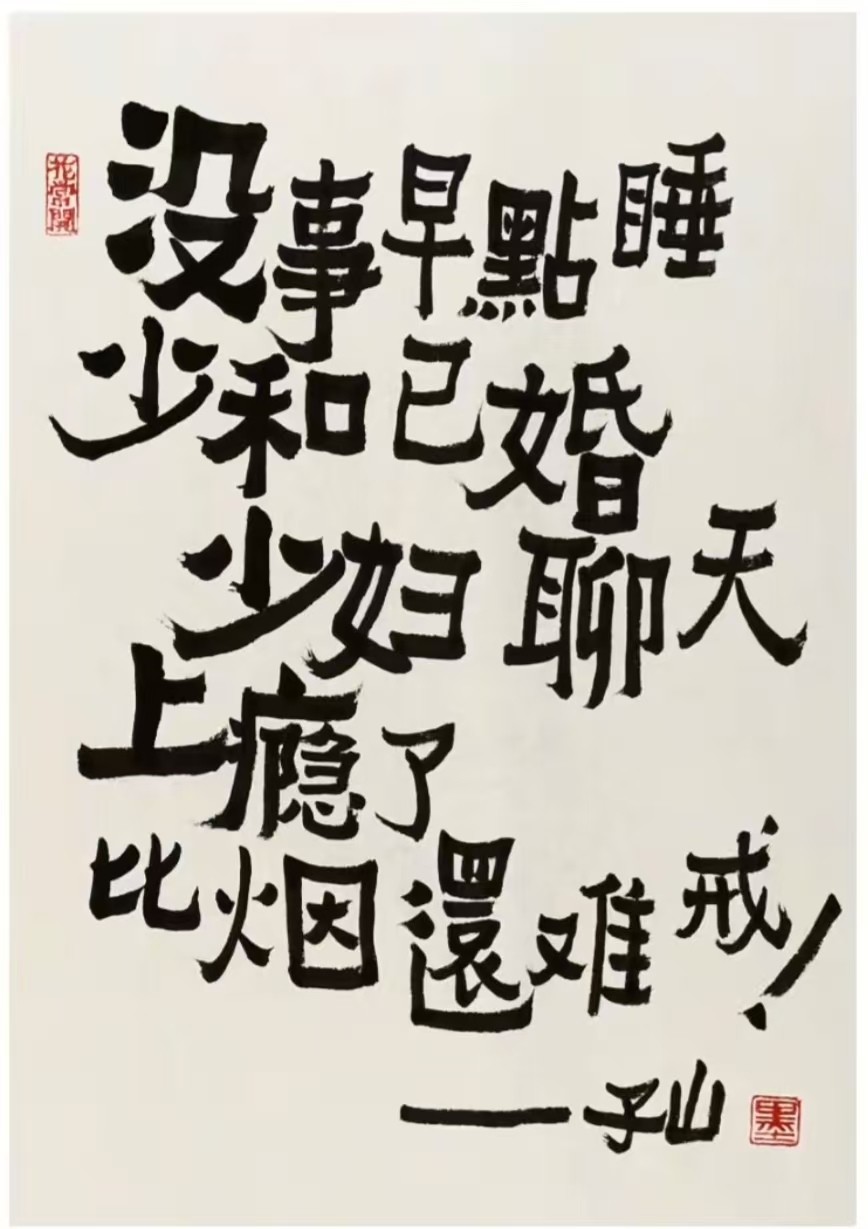 花常開
没事早點睡
少和已婚
少妇聊天
上瘾了
比烟還难戒！
—子山
墨